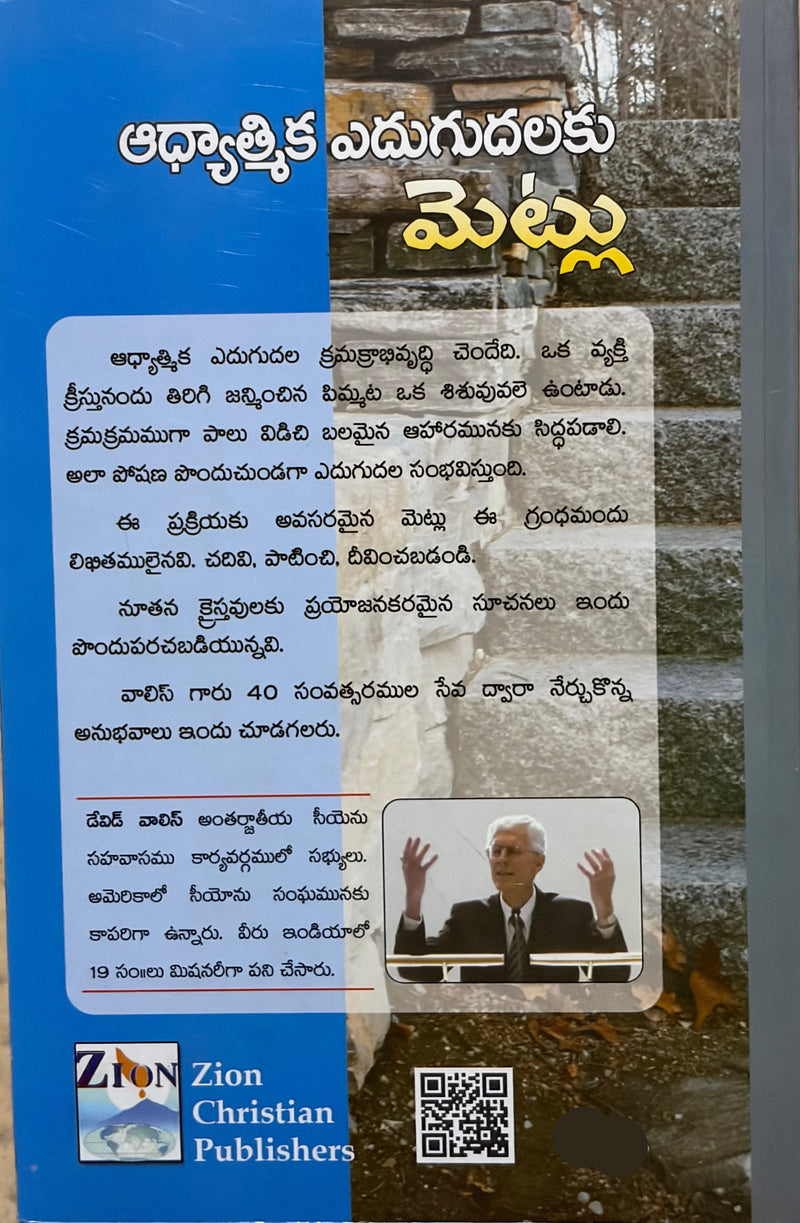 ఆధ్యాత్మిక ఎదుగుదలకు
మెట్లు
ఆధ్యాత్మిక ఎదుగుదల క్రమక్రాభివృద్ధి చెందేది. ఒక వ్యక్తి
క్రీస్తునందు తిరిగి జన్మించిన పిమ్మట ఒక శిశువువలె ఉంటాడు.
క్రమక్రమముగా పాలు విడిచి బలమైన ఆహారమునకు సిద్ధపడాలి.
అలా పోషణ పొందుచుండగా ఎదుగుదల సంభవిస్తుంది.
ఈ ప్రక్రియకు అవసరమైన మెట్లు ఈ గ్రంధమందు
లిఖితములైనవి. చదివి, పాటించి, దీవించబడండి.
నూతన క్రైస్తవులకు ప్రయోజనకరమైన సూచనలు ఇందు
పొందుపరచబడియున్నవి.
వాలిస్ గారు 40 సంవత్సరముల సేవ ద్వారా నేర్చుకొన్న
అనుభవాలు ఇందు చూడగలరు.
డేవిడ్ వాలిస్ అంతర్జాతీయ సీయెను
సహవాసము కార్యవర్గములో సభ్యులు.
అమెరికాలో సీయోను సంఘమునకు
కాపరిగా ఉన్నారు. వీరు ఇండియాలో
19 సం॥లు మిషనరీగా పని చేసారు.
ZION
Zion
Christian
Publishers